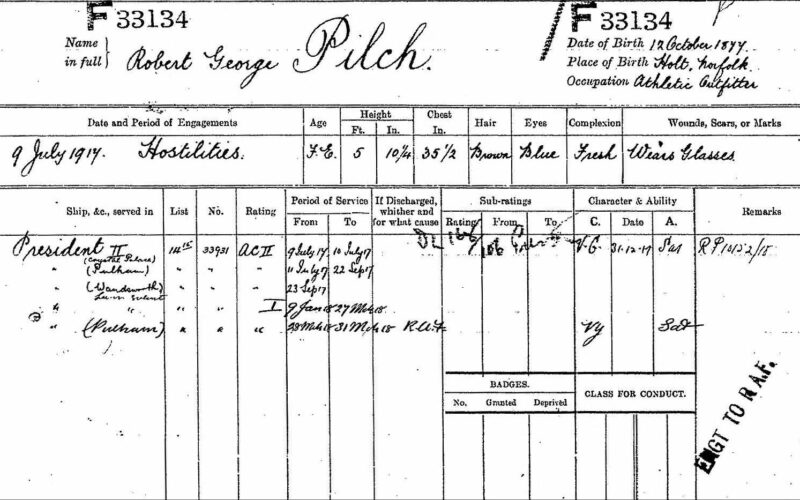 F 33134
F 33134
Name in full } Robert George Pilch.
Date of Birth 12 October 1877.
Place of Birth Holt, Norfolk.
Occupation Athletic Outfitter
Date and Period of Engagements
Age
Height
Ft. In.
Chest In.
Hair
Eyes
Complexion
Wounds, Scars, or Marks
9 July 1917. Hostilities.
F.E. 5 10¼ 35½ Brown Blue Fresh Wears Glasses
Ship, &c., served in
List
No.
Rating
Period of Service
From To
If Discharged, whether and for what cause
Sub-ratings
Rating From To
Character & Ability
C. Date A.
Remarks
President II 14 15 33931 AC II 9 July 17 10 July 17 V.G. 31-12-17 Sat
(Crystal Palace)
" (Pulham) " " " 11 July 17 22 Sep 17
" (Wandsworth) " " " 23 Sep 17
" " " " I 9 Jan 18 27 Mch 18
" (Pulham) " " " 28 Mch 18 31 Mch 18 R.A.F. VG Sat
BADGES.
No. Granted Deprived
CLASS FOR CONDUCT.
ENGT TO R.A.F.